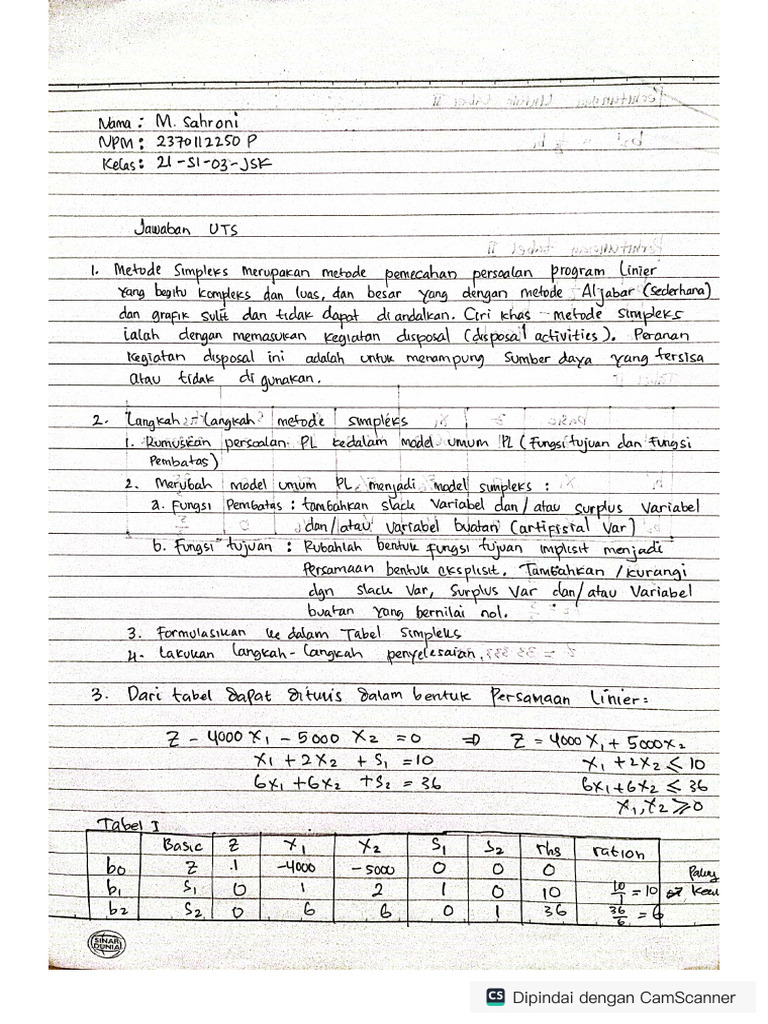 Nama : M. Sahroni
NPM : 2370112250 P
Kelas : 21-SI-03-JSK
Jawaban UTS
1. Metode Simpleks merupakan metode pemecahan persoalan program Linier
yang begitu kompleks dan luas, dan besar yang dengan metode Aljabar (sederhana)
dan grafik sulit dan tidak dapat diandalkan. Ciri khas metode simpleks
ialah dengan memasukan kegiatan disposal (disposal activities). Peranan
kegiatan disposal ini adalah untuk menampung sumber daya yang tersisa
atau tidak di gunakan.
2. Langkah-langkah metode simpleks
1. Rumuskan persoalan PL kedalam model umum PL (Fungsi tujuan dan Fungsi
Pembatas)
2. Merubah model umum PL menjadi model simpleks :
a. Fungsi Pembatas : tambahkan slack Variabel dan/atau Surplus Variabel
dan/atau Variabel buatan (artifisial Var)
b. Fungsi tujuan : Rubahlah bentuk fungsi tujuan implisit menjadi
Persamaan bentuk eksplisit. Tambahkan/kurangi
dgn slack Var, Surplus Var dan/atau Variabel
buatan yang bernilai nol.
3. Formulasikan ke dalam Tabel Simpleks
4. Lakukan langkah-langkah penyelesaian.
3. Dari tabel dapat ditulis dalam bentuk Persamaan Linier :
Z - 4000 X1 - 5000 X2 = 0 ⇒ Z = 4000 X1 + 5000X2
X1 + 2X2 + S1 = 10 X1 + 2X2 ≤ 10
6X1 + 6X2 + S2 = 36 6X1 + 6X2 ≤ 36
X1, X2 ≥ 0
Tabel I
Basic Z X1 X2 S1 S2 rhs ration
b0 Z 1 -4000 -5000 0 0 0
b1 S1 0 1 2 1 0 10 10/1 = 10
b2 S2 0 6 6 0 1 36 36/6 = 6
SINAR DUNIA
CS Dipindai dengan CamScanner